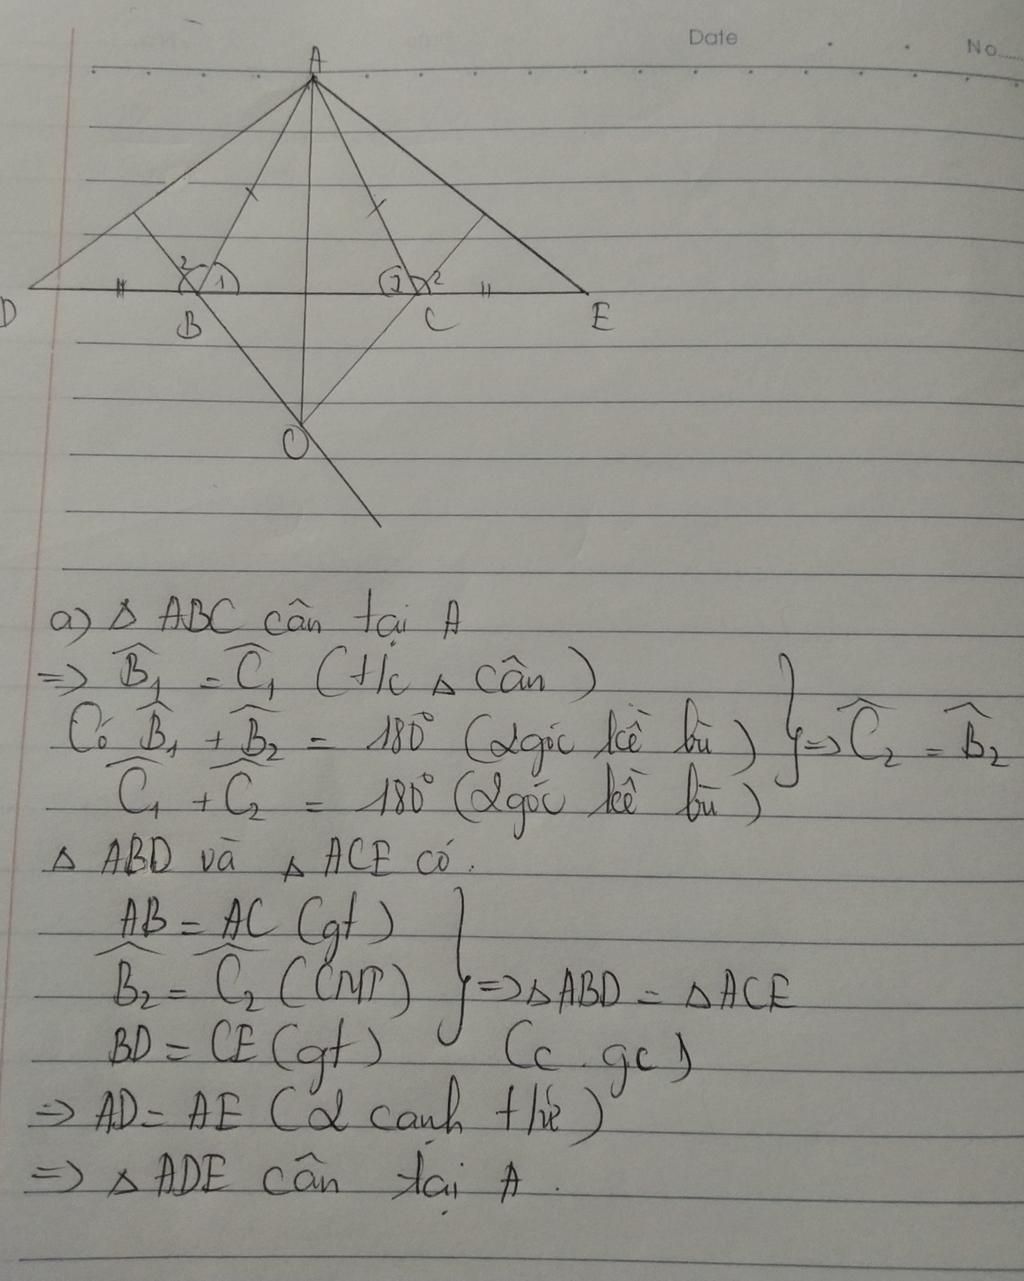 Date
No
A
2 1 1 2
D B C E
O
a) Δ ABC cân tại A
=> B̂₁ = Ĉ₁ (t/c Δ cân)
Có B̂₁ + B̂₂ = 180° (2 góc kề bù) } => Ĉ₂ = B̂₂
Ĉ₁ + Ĉ₂ = 180° (2 góc kề bù)
Δ ABD và Δ ACE có.
AB = AC (gt)
B̂₂ = Ĉ₂ (CMT) } => Δ ABD = Δ ACE
BD = CE (gt) (c.gc)
=> AD = AE (2 cạnh t/ứ)
=> Δ ADE cân tại A.